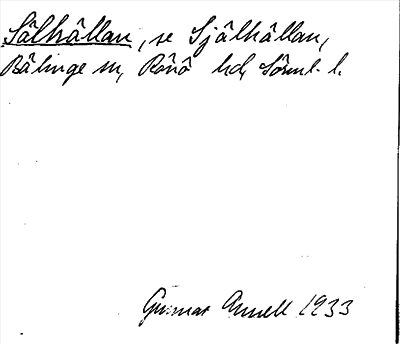 Sälhällan, se Själhällan,
Bälinge sn, Rönö hd, Sörml. l.
Gunnar Annell 1933